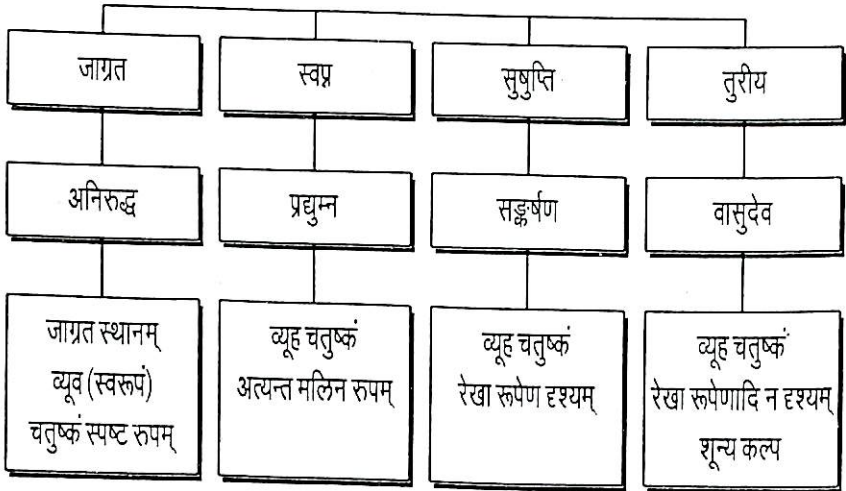 जाग्रत
स्वप्न
सुषुप्ति
तुरीय
अनिरुद्ध
प्रद्युम्न
सङ्कर्षण
वासुदेव
जाग्रत स्थानम्
व्यूव (स्वरूपं)
चतुष्कं स्पष्ट रुपम्
व्यूह चतुष्कं
अत्यन्त मलिन रुपम्
व्यूह चतुष्कं
रेखा रूपेण दृश्यम्
व्यूह चतुष्कं
रेखा रूपेणादि न दृश्यम्
शून्य कल्प